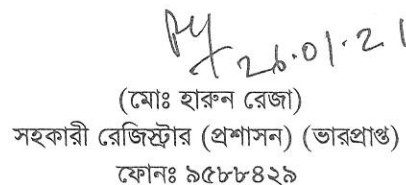 26.01.21
(মোঃ হারুন রেজা)
সহকারী রেজিস্ট্রার (প্রশাসন) (ভারপ্রাপ্ত)
ফোনঃ ৯৫৮৮৪২৯